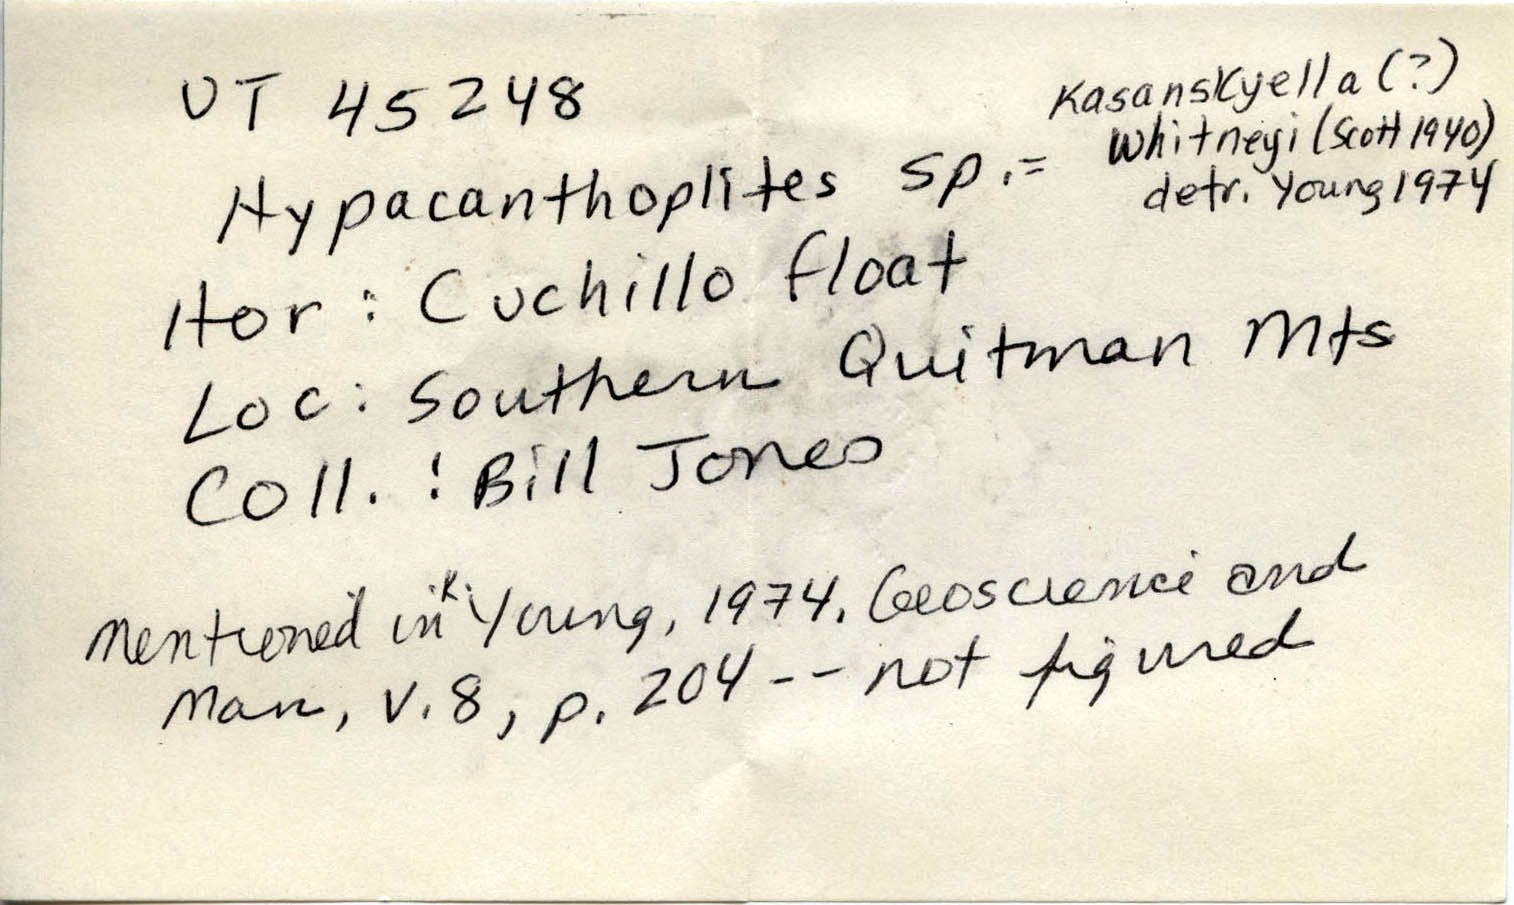 UT 45248
Hypacanthoplites sp. = Kasanskyella (?)
Whitneyi (Scott 1940)
detr. Young 1974
Hor : Cuchillo float
Loc : Southern Quitman Mts
Coll. : Bill Jones
Mentioned in K. Young, 1974. Geoscience and
Man, V. 8, p. 204 -- not figured